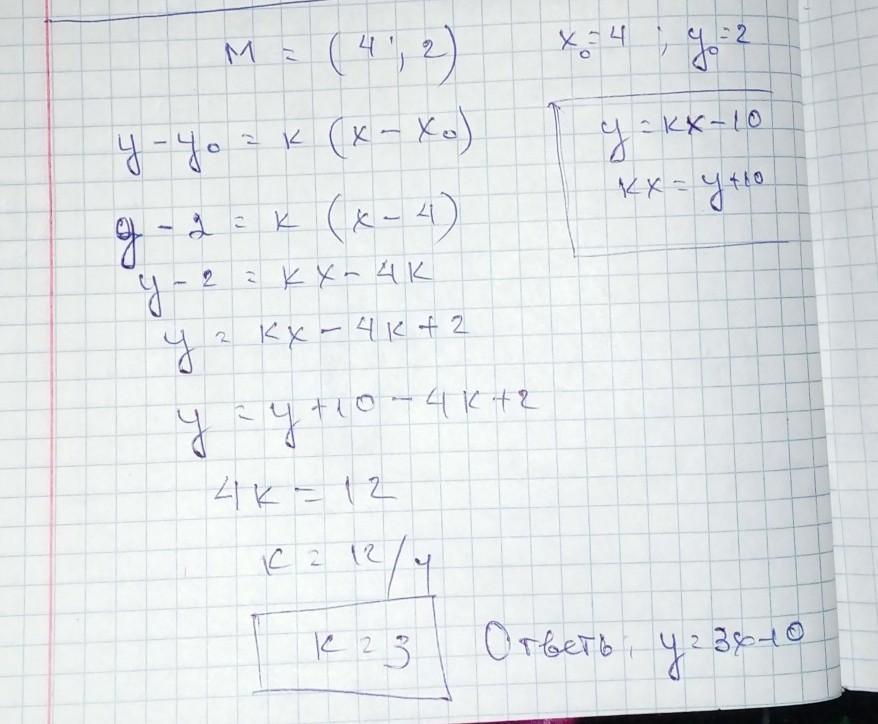 M = (4; 2)
x₀=4 ; y₀=2
y - y₀ = k (x - x₀)
y = kx - 10
kx = y + 10
y - 2 = k (x - 4)
y - 2 = kx - 4k
y = kx - 4k + 2
y = y + 10 - 4k + 2
4k = 12
k = 12/4
k = 3
Ответь, y = 3x - 10